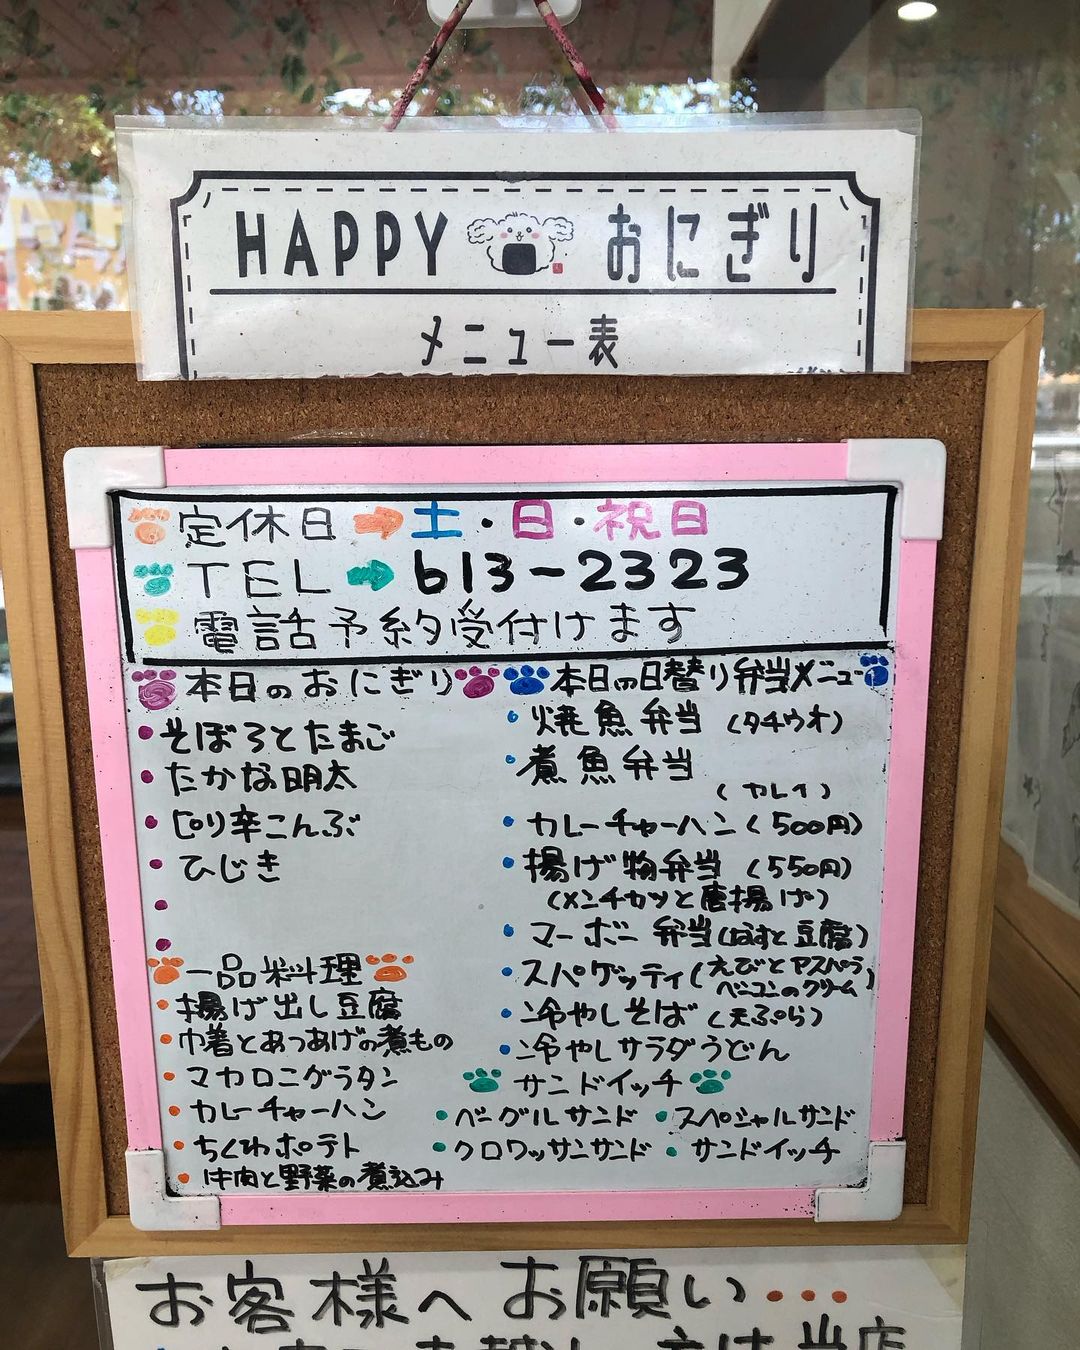 HAPPY おにぎり
メニュー表
定休日 ➡ 土・日・祝日
TEL ➡ 613-2323
電話予約受付けます
本日のおにぎり
・そぼろとたまご
・たかな明太
・ピリ辛こんぶ
・ひじき
一品料理
・揚げ出し豆腐
・巾着とあつあげの煮もの
・マカロニグラタン
・カレーチャーハン
・ちくわポテト
・牛肉と野菜の煮込み
本日の日替り弁当メニュー
・焼魚弁当 (タチウオ)
・煮魚弁当
(カレイ)
・カレーチャーハン(500円)
・揚げ物弁当 (550円)
(メンチカツと唐揚げ)
・マーボー弁当(なすと豆腐)
・スパゲッティ(えびとアスパラ
ベーコンのクリーム)
・冷やしそば(天ぷら)
・冷やしサラダうどん
サンドイッチ
・ベーグルサンド ・スペシャルサンド
・クロワッサンサンド ・サンドイッチ
お客様へお願い・・・